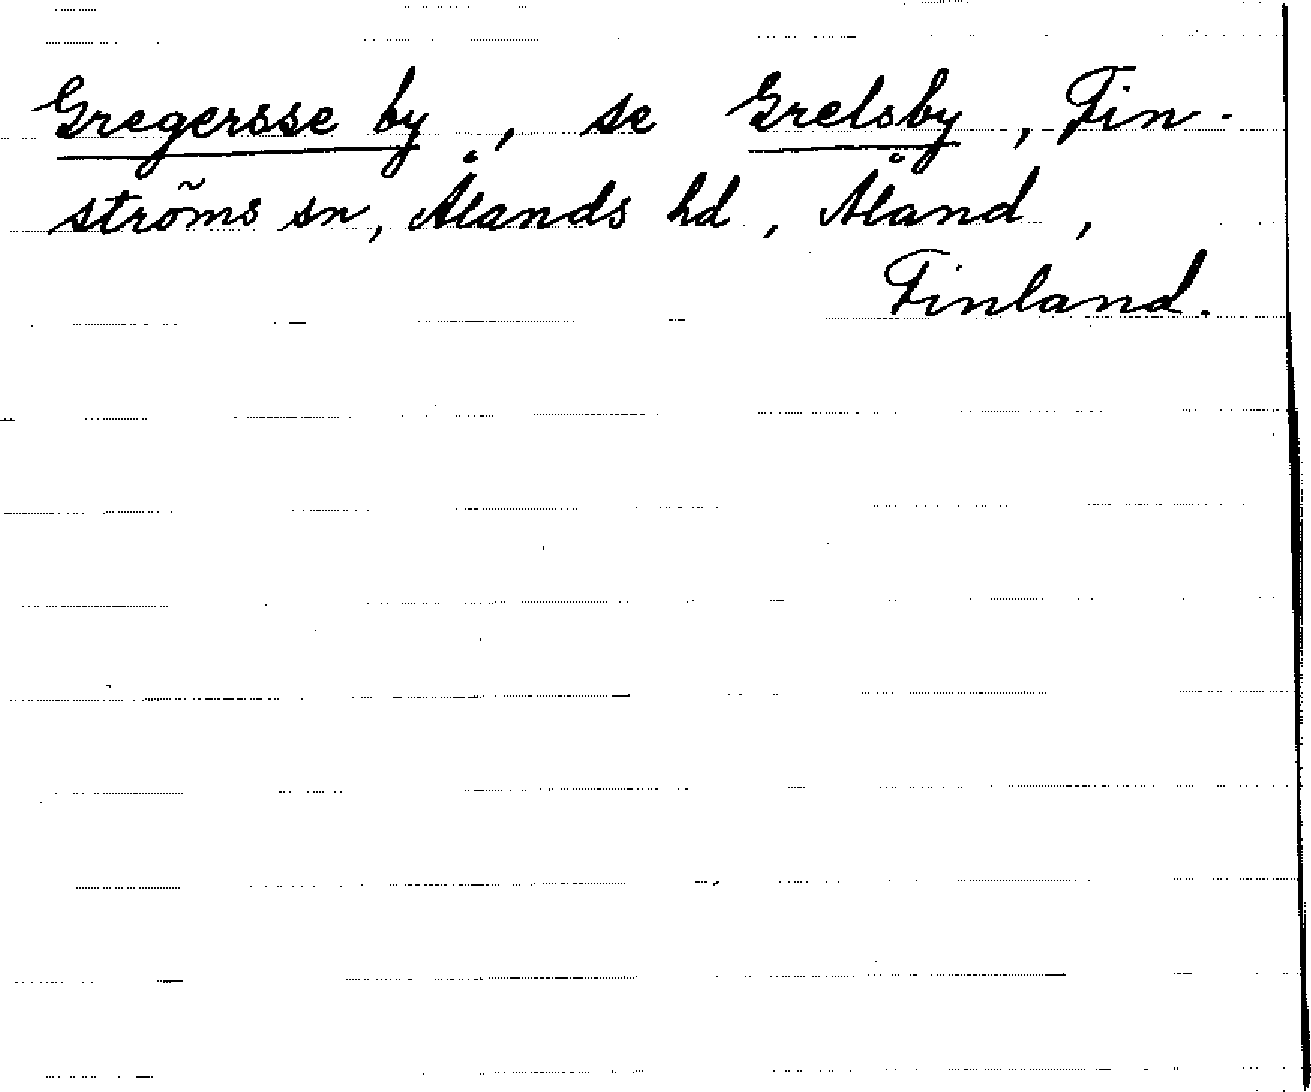 Gregersse by, se Grelsby, Fin-
ströms sn, Ålands hd, Åland,
Finland.